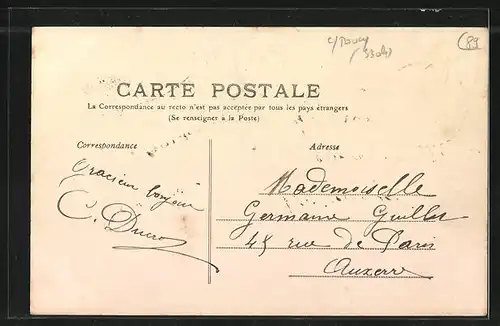 (89
CARTE POSTALE
La Correspondance au recto n'est pas acceptée par tous les pays étrangers
(Se renseigner à la Poste)
Correspondance
Adresse
Gracieux bonjour
C. Ducro
Mademoiselle
Germaine Guillot
45 rue de Paris
Auxerre